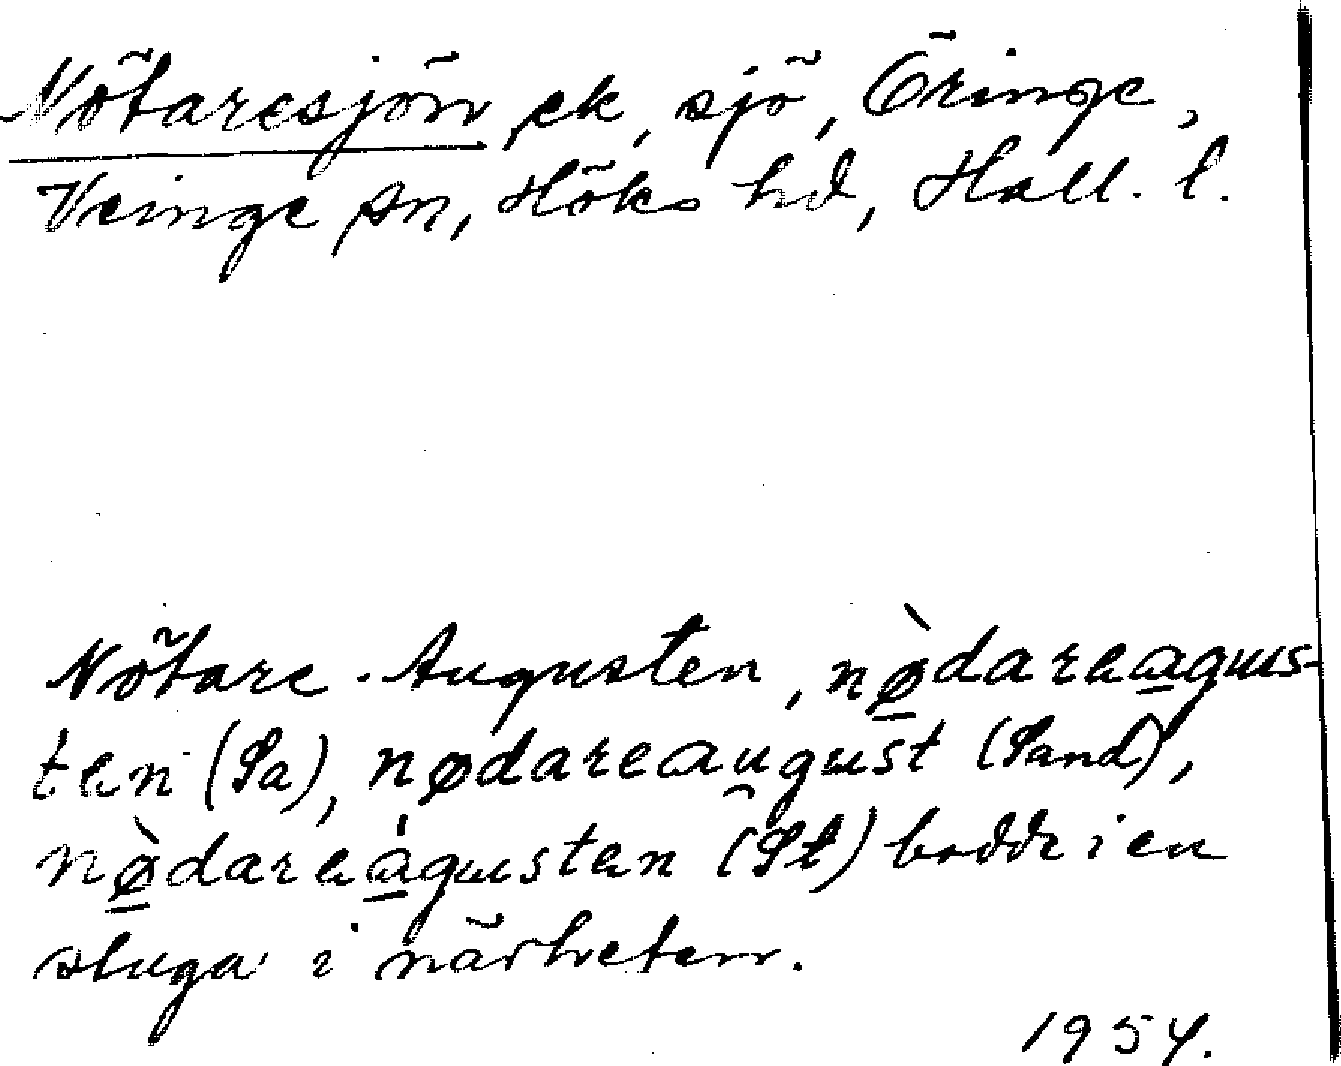 Nötaresjön, ek, sjö, Öringe,
Veinge sn, Höks hd, Hall. l.
Nötare-Augusten, nø̀dareagus-
ten (Sa), nødareaugust (Sand),
nø̀dareágusten (St) bodde i en
stuga i närheten.
1954.